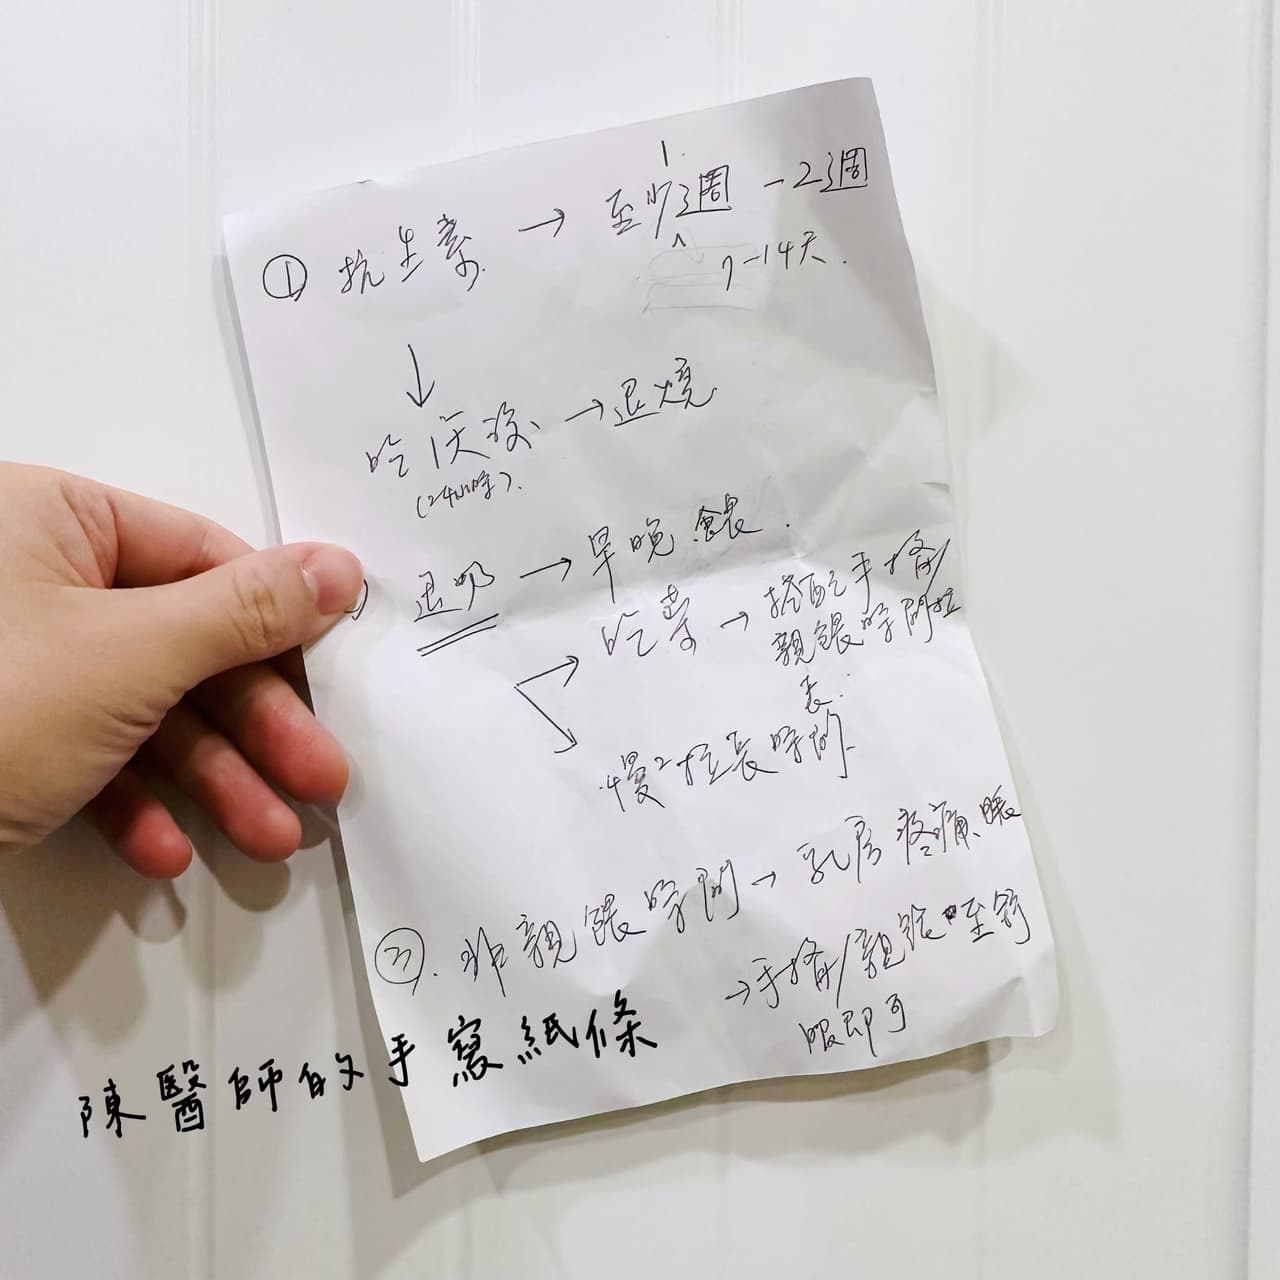 ① 抗生素 → 至少1週 - 2週
7-14天.
↓
吃1天後 → 退燒
(24小時).
退奶 → 早晚親餵.
→ 吃藥 → 搭配手擠/
親餵時間拉
長.
→ 慢2拉長時間.
③. 非親餵時間 → 乳房疼痛、脹
→ 手擠/親餵至舒
服即可
陳醫師的手寫紙條